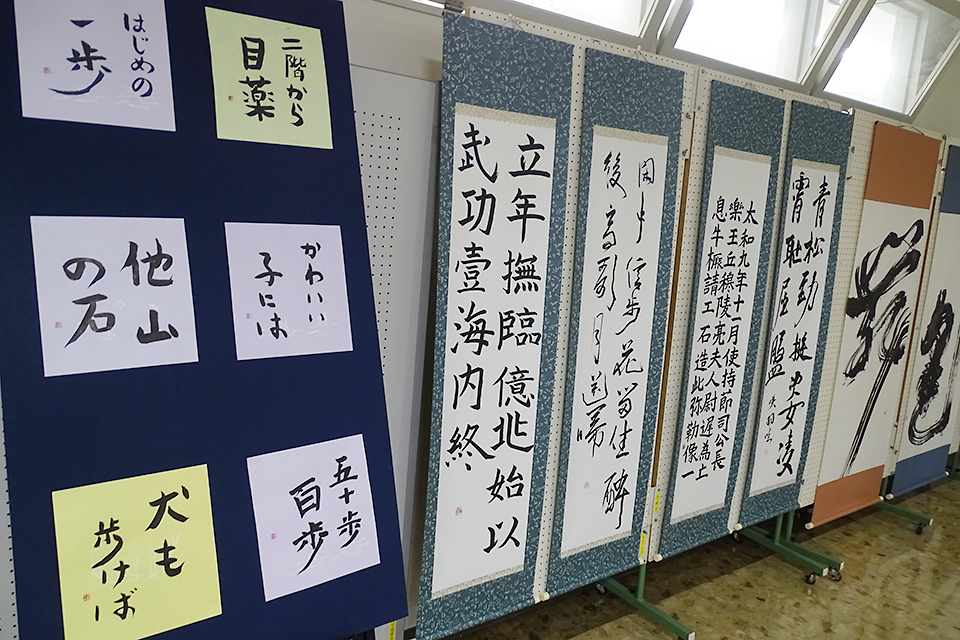 はじめの
一歩
二階から
目薬
他山
の石
かわいい
子には
犬も
歩けば
五十歩
百歩
立年撫臨億兆始以
武功壹海内終
閑中信歩花留坐酔
後高歌月送帰
太和九年十一月使持節司公長
樂王丘穆陵亮夫人尉遲為亡
息牛橛請工石造此弥勒像一
青松勁挺姿凌
霄恥屈盤